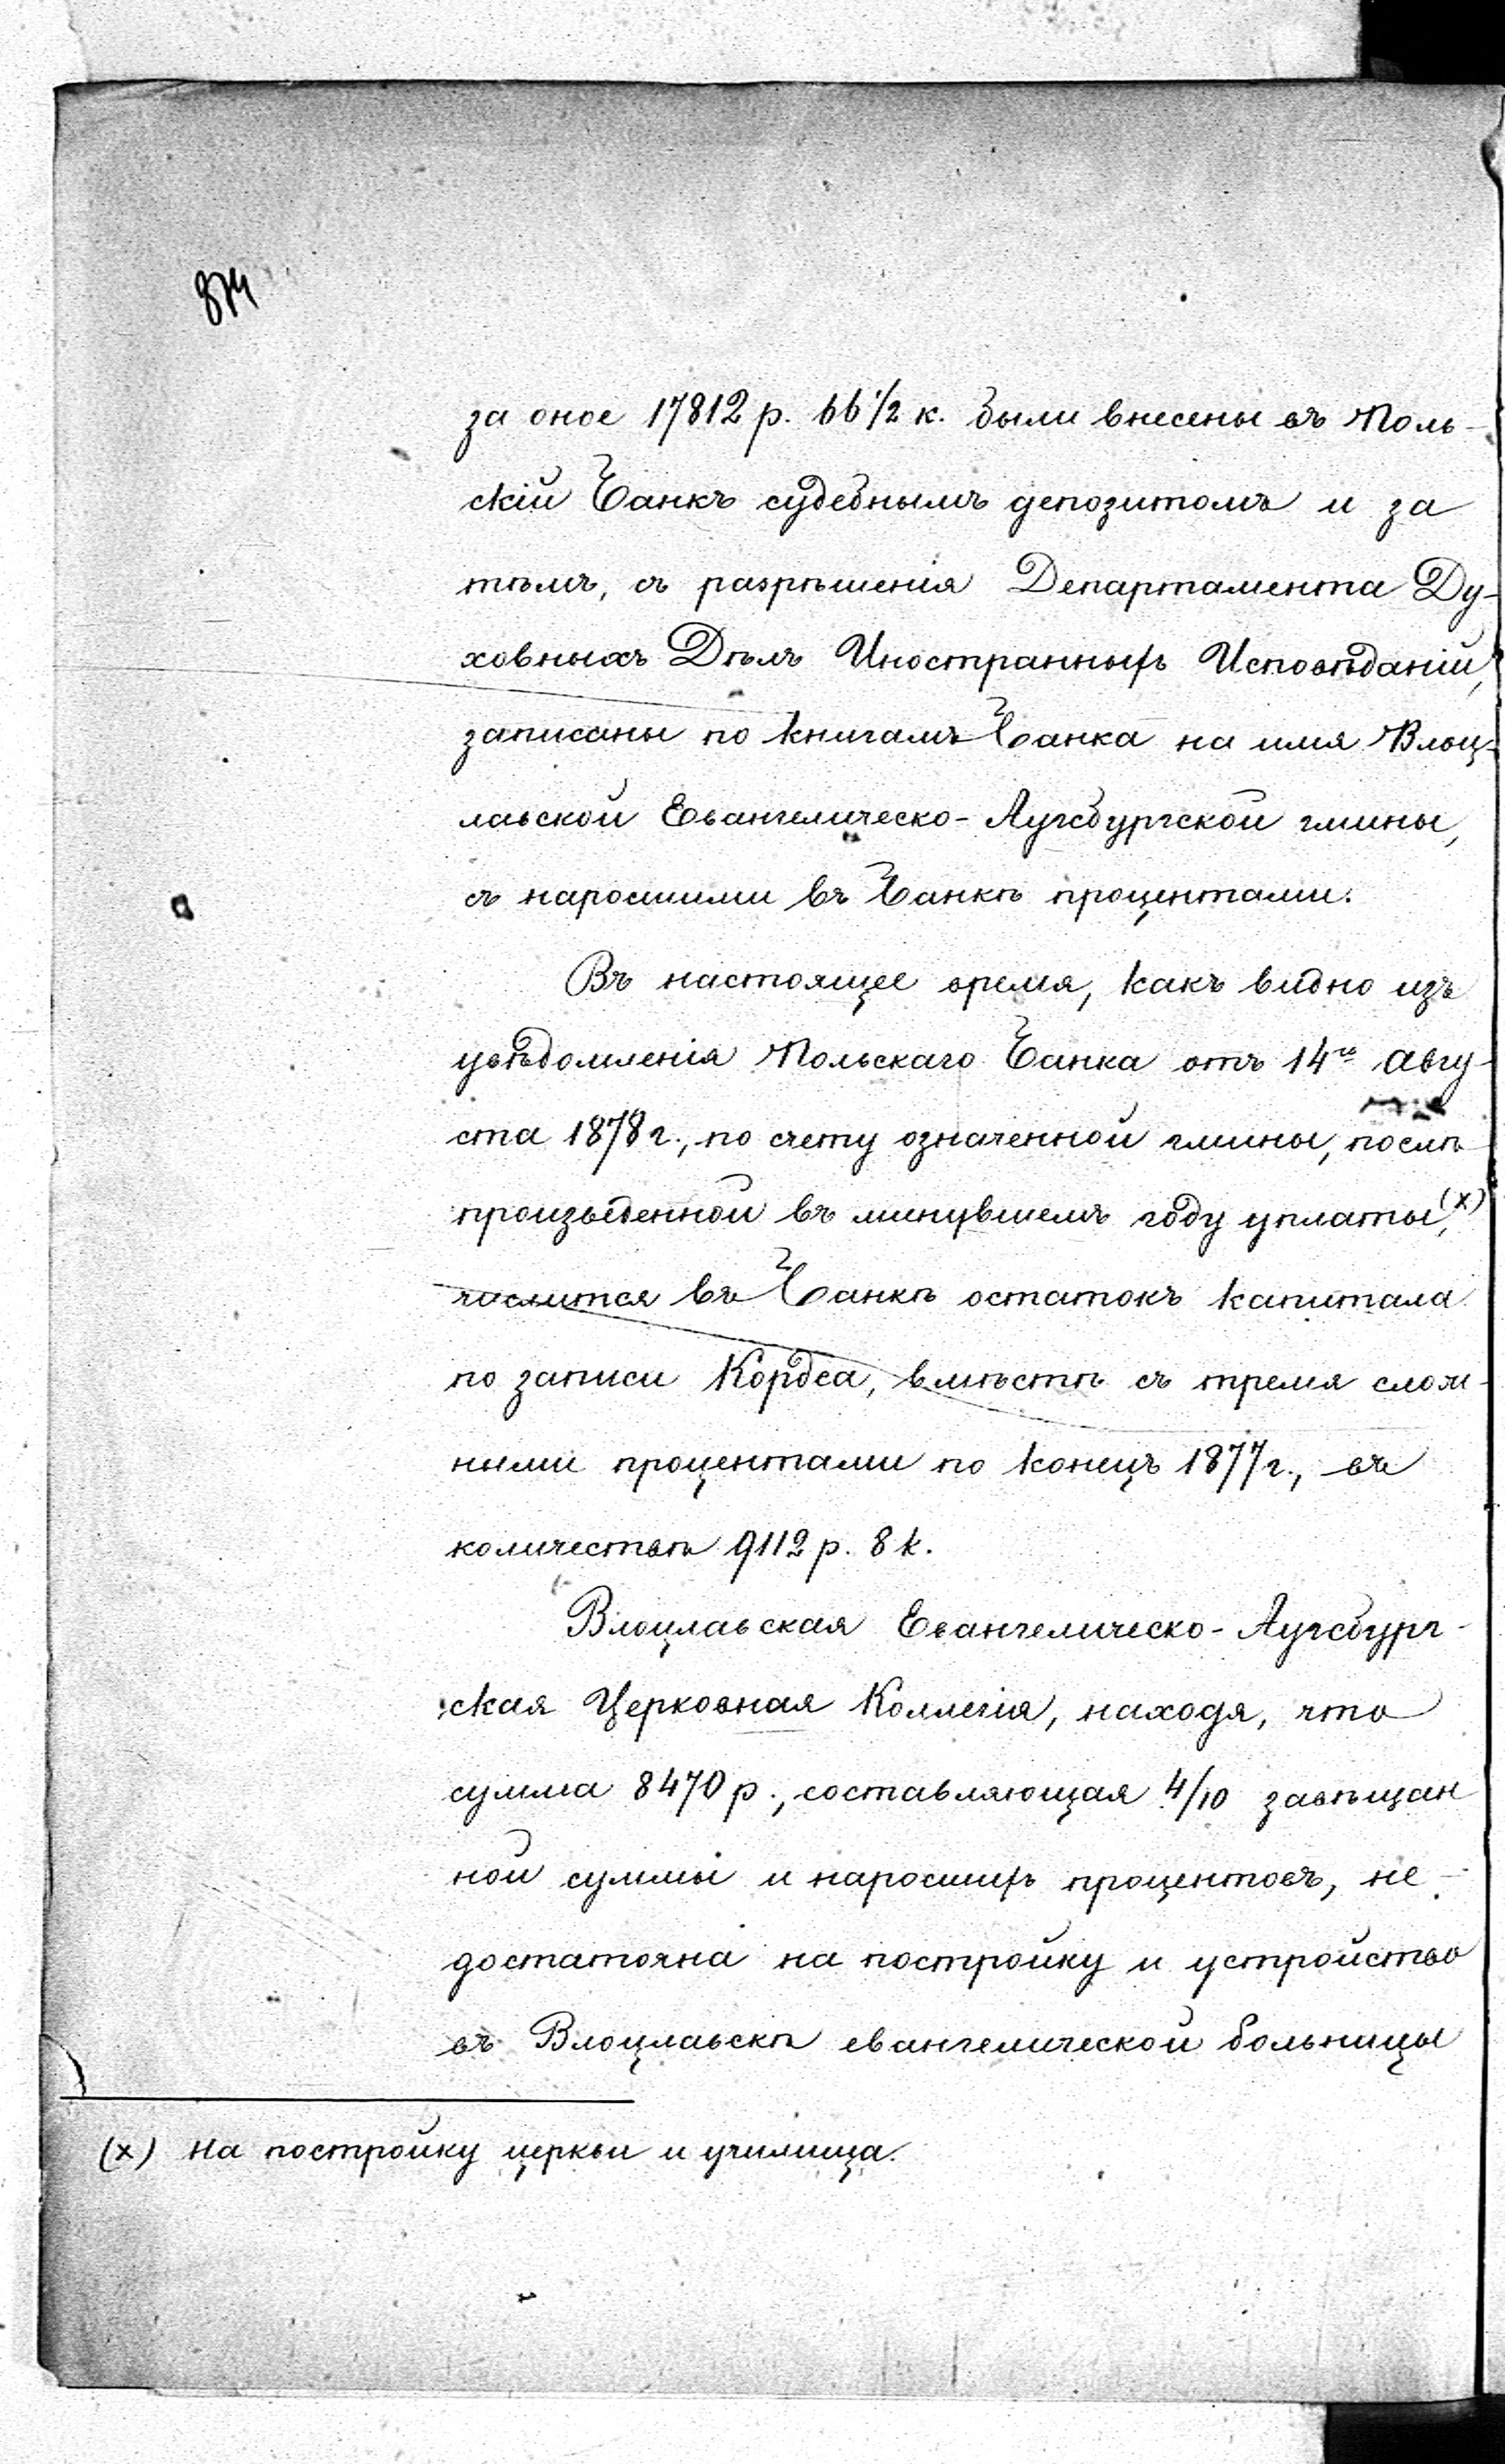 874
за оное 17812 р. 66 1/2 к. были внесены въ Поль-
скій Банкъ судебнымъ депозитомъ и за
тѣмъ, съ разрѣшенія Департамента Ду-
ховныхъ Дѣлъ Иностранныхъ Исповѣданій,
записаны по книгамъ Банка на имя Влоц-
лавской Евангелическо-Аугсбургской гмины,
съ наросшими въ Банкѣ процентами.
Въ настоящее время, какъ видно изъ
увѣдомленія Польскаго Банка отъ 14го Авгу-
ста 1878 г., по счету означенной гмины, послѣ
произведенной въ минувшемъ году уплаты (х),
числится въ Банкѣ остатокъ капитала
по записи Кордеа, вмѣстѣ съ тремя слож-
ными процентами по конецъ 1877 г., въ
количествѣ 9112 р. 8 к.
Влоцлавская Евангелическо-Аугсбург-
ская Церковная Коллегія, находя, что
сумма 8470 р., составляющая 4/10 завѣщан
ной суммы и наросшихъ процентовъ, не-
достаточна на постройку и устройство
въ Влоцлавскѣ евангелической больницы
(х) На постройку церкви и училища.